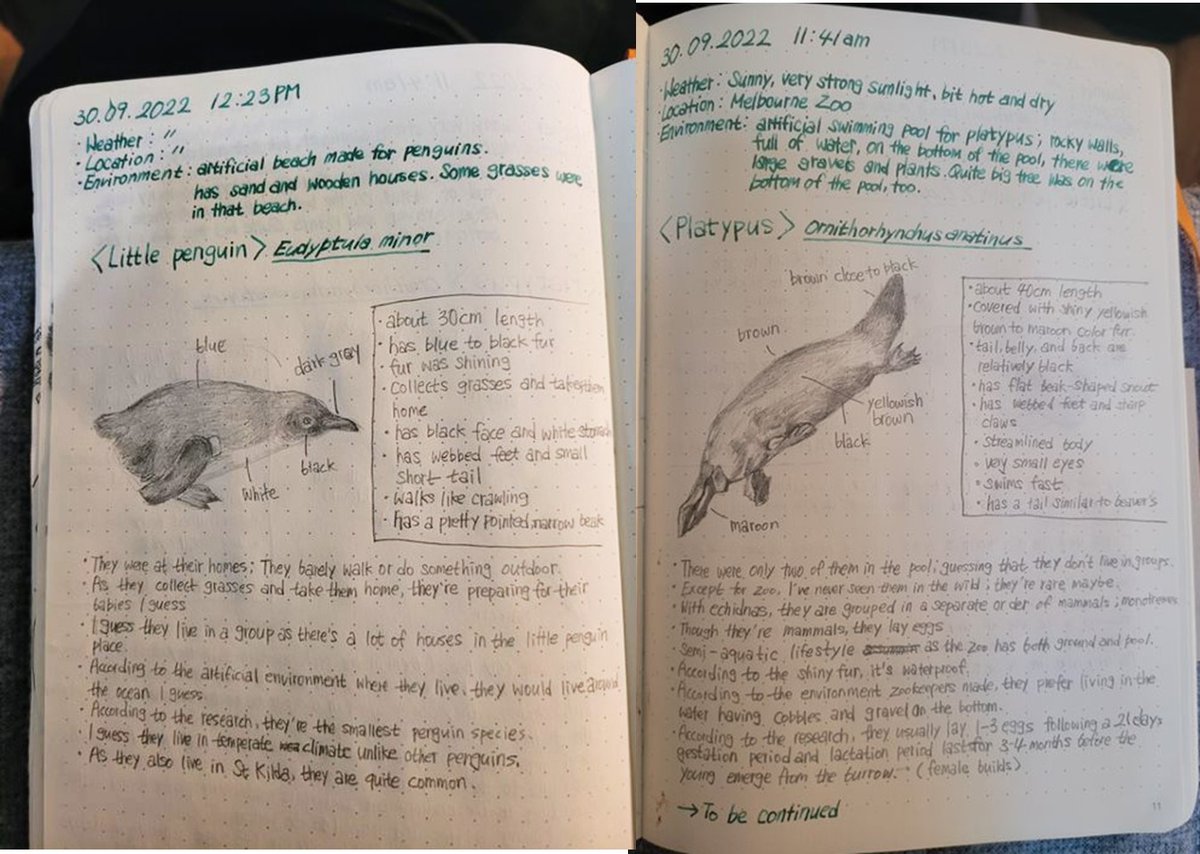 30.09.2022 12:23PM
• Weather : 〃
• Location : 〃
• Environment : artificial beach made for penguins.
has sand and wooden houses. Some grasses were
in that beach.
<Little penguin> Eudyptula minor
blue
dark gray
black
white
• about 30cm length
• has blue to black fur
• fur was shining
• collects grasses and take them
home
• has black face and white stomach
• has webbed feet and small
short tail
• walks like crawling
• has a pretty pointed, narrow beak
• They were at their homes; They barely walk or do something outdoor.
• As they collect grasses and take them home, they're preparing for their
babies I guess
• I guess they live in a group as there's a lot of houses in the little penguin
place.
• According to the artificial environment where they live, they would live around
the ocean I guess.
• According to the research, they're the smallest penguin species.
• I guess they live in temperate climate unlike other penguins.
• As they also live in St Kilda, they are quite common.
30.09.2022 11:41am
• Weather : Sunny, very strong sunlight, bit hot and dry
• Location : Melbourne Zoo
• Environment : artificial swimming pool for platypus; rocky walls,
full of water, on the bottom of the pool, there were
large gravels and plants. Quite big tree was on the
bottom of the pool, too.
<Platypus> Ornithorhynchus anatinus
brown close to black
brown
yellowish
brown
black
maroon
• about 40cm length
• covered with shiny yellowish
brown to maroon color fur
• tail, belly, and back are
relatively black
• has flat beak-shaped snout
• has webbed feet and sharp
claws
• streamlined body
• very small eyes
• swims fast
• has a tail similar to beaver's
• There were only two of them in the pool; guessing that they don't live in groups.
• Except for zoo, I've never seen them in the wild; they're rare maybe.
• With echidnas, they are grouped in a separate order of mammals; monotremes
• Though they're mammals, they lay eggs.
• Semi-aquatic lifestyle as the zoo has both ground and pool.
• According to the shiny fur, it's waterproof.
• According to the environment zookeepers made, they prefer living in the
water having cobbles and gravel on the bottom.
• According to the research, they usually lay 1-3 eggs following a 21 days
gestation period and lactation period last for 3-4 months before the
young emerge from the burrow. (female builds)
→ To be continued
11